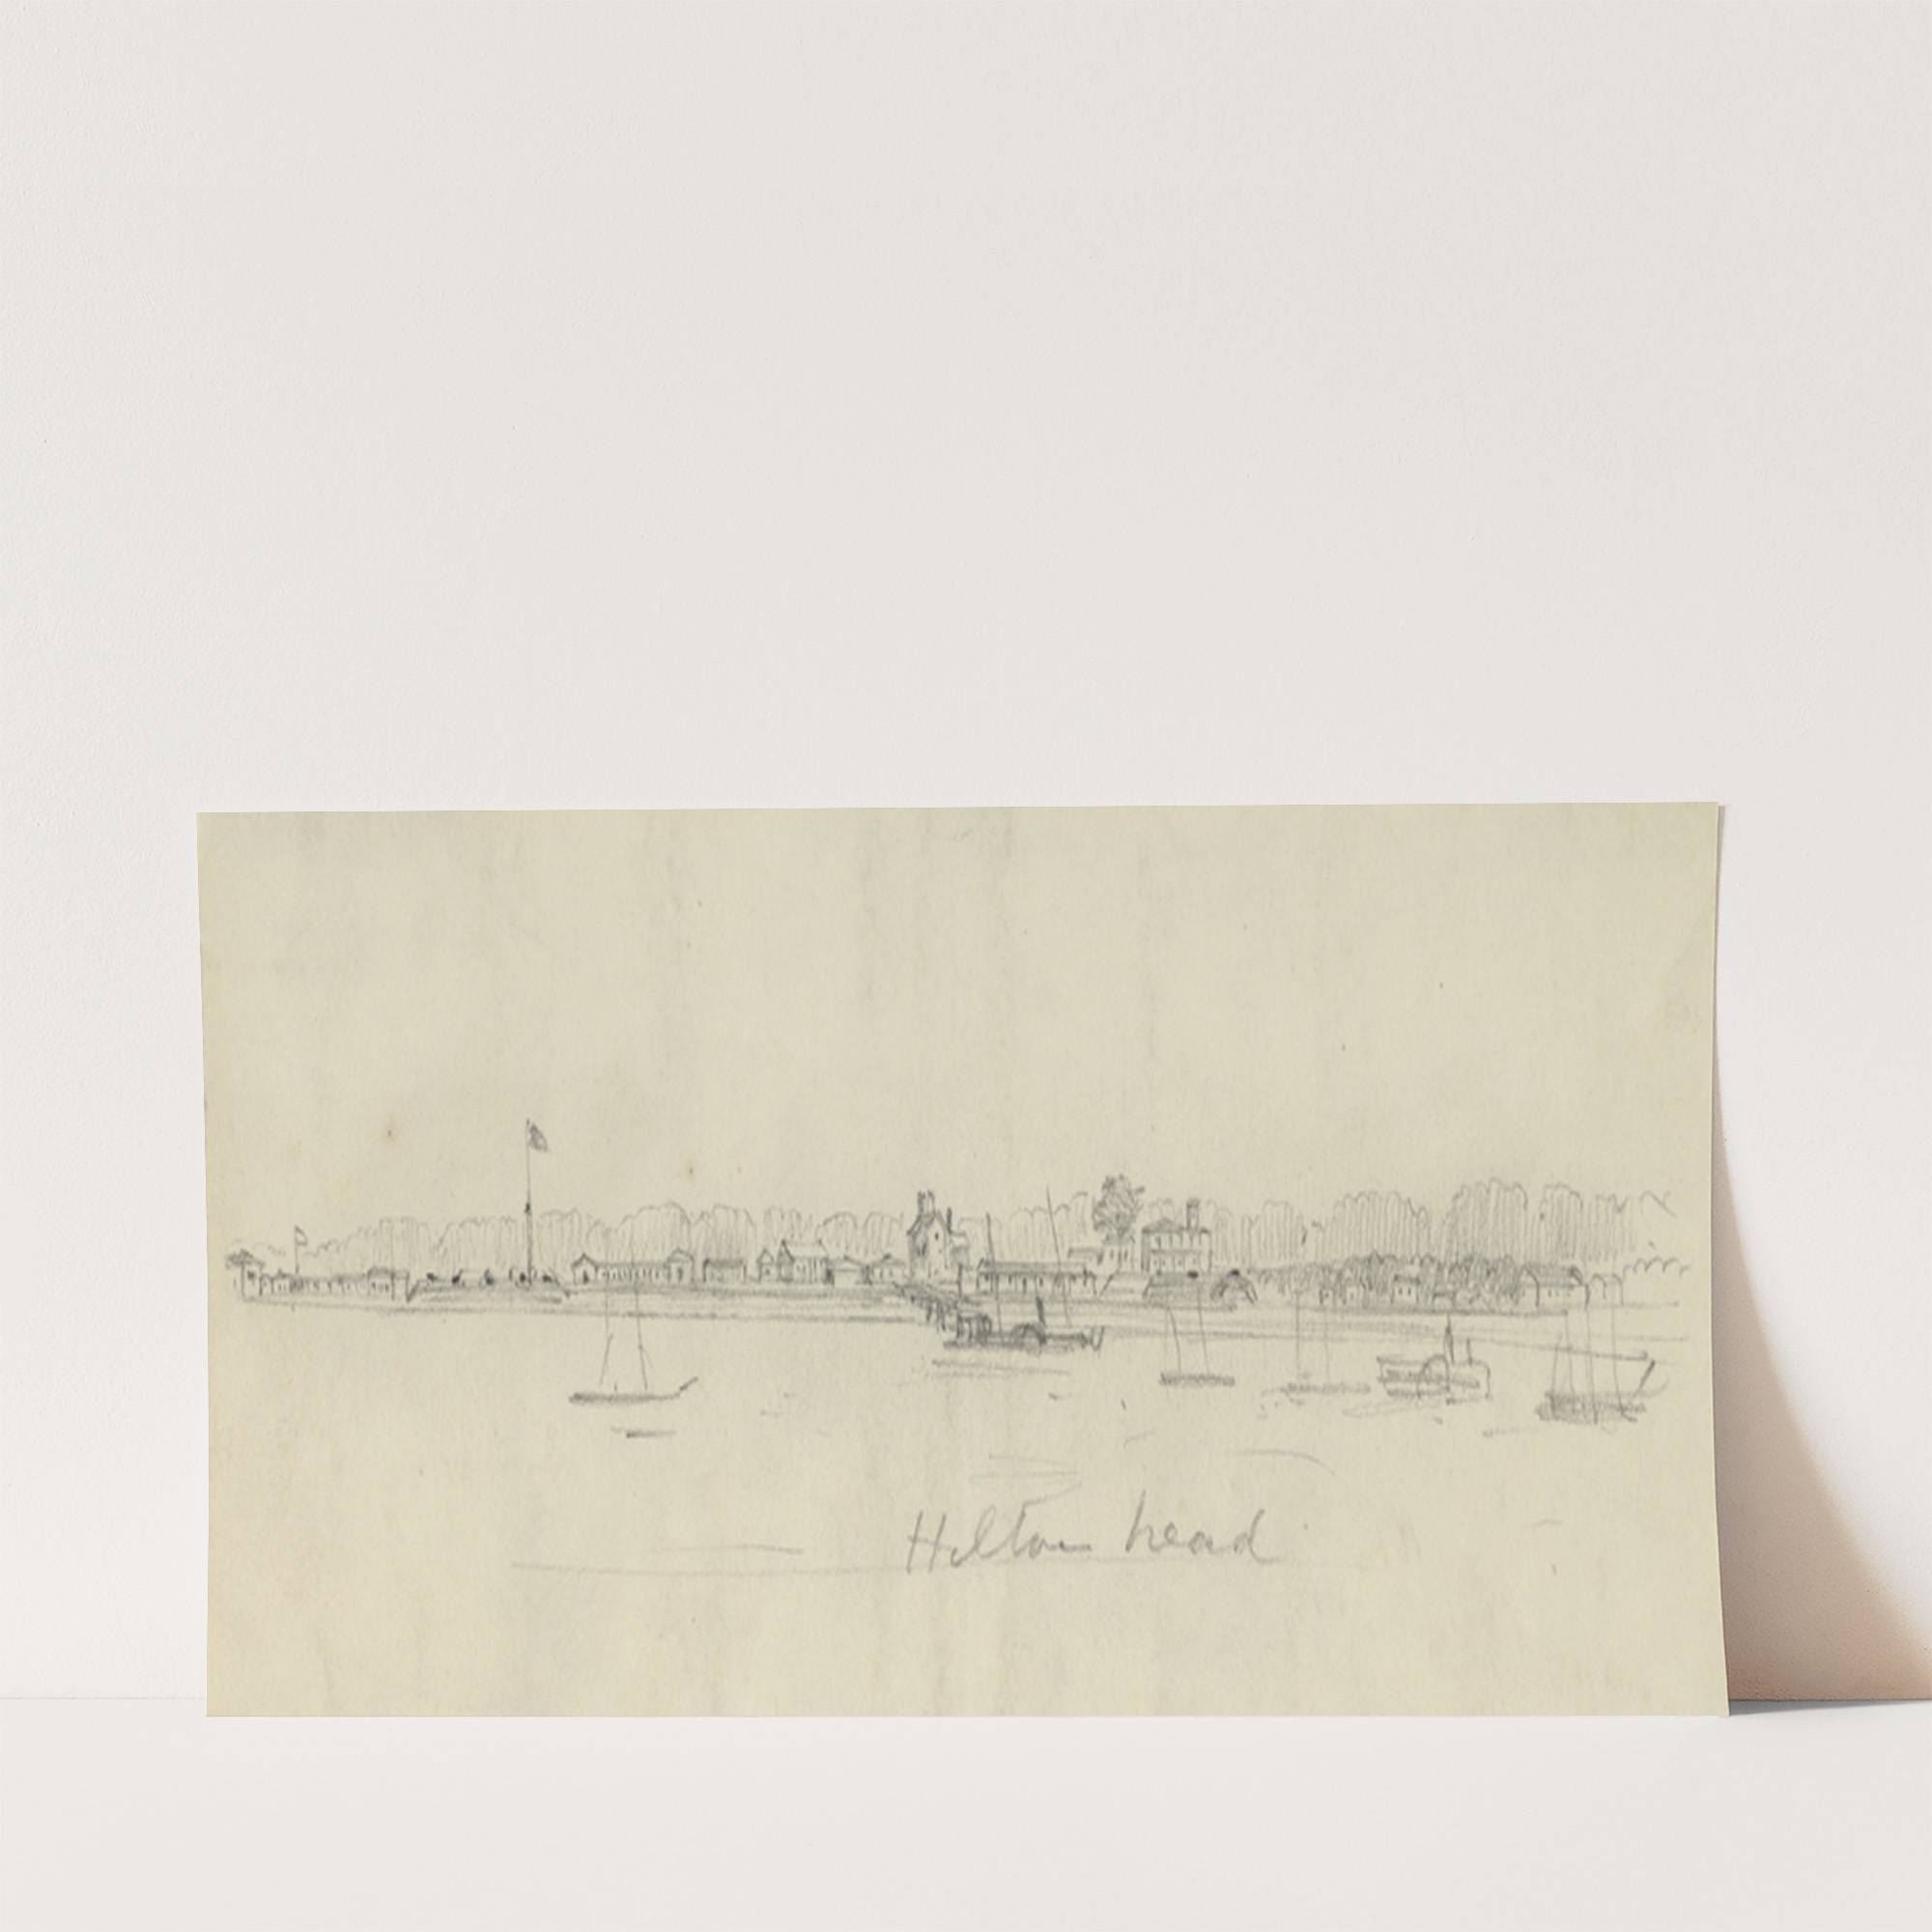 Hilton head